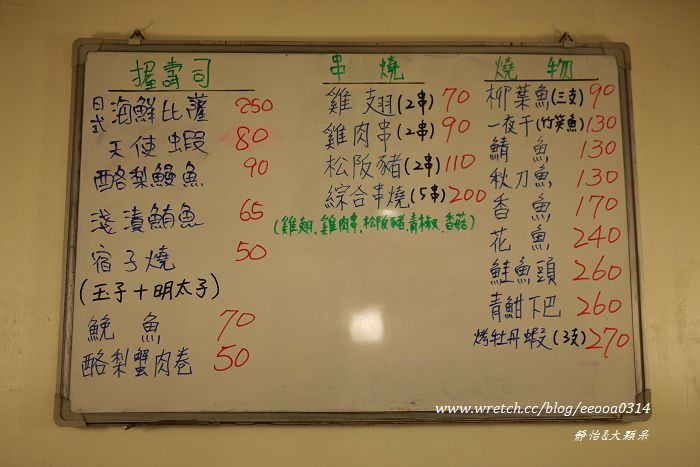 握壽司
日式海鮮比薩 250
天使蝦 80
酪梨鰻魚 90
淺漬鮪魚 65
宿子燒 50
(玉子+明太子)
鮸魚 70
酪梨蟹肉卷 50
串燒
雞翅(2串) 70
雞肉串(2串) 90
松阪豬(2串) 110
綜合串燒(5串) 200
(雞翅、雞肉串、松阪豬、青椒、香菇)
燒物
柳葉魚(三支) 90
一夜干(竹筴魚) 130
鯖魚 130
秋刀魚 130
香魚 170
花魚 240
鮭魚頭 260
青魽下巴 260
烤牡丹蝦(3支) 270
www.wretch.cc/blog/eeooa0314
靜怡&大顆呆